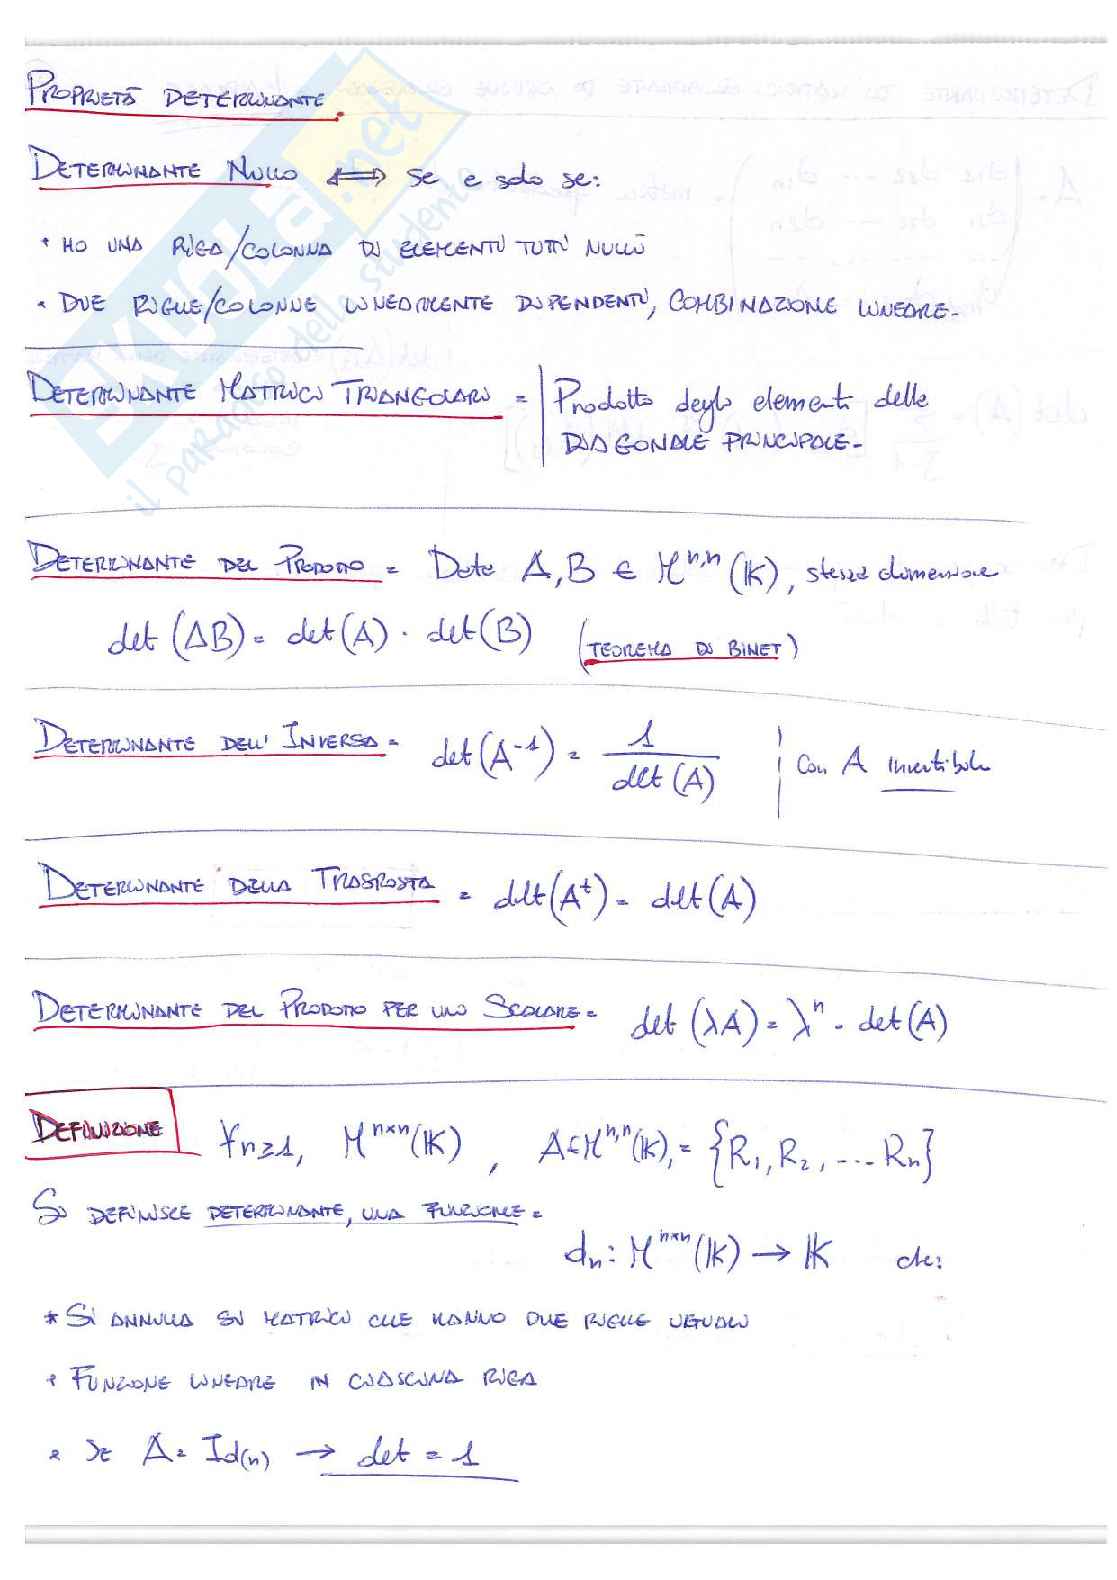 PROPRIETÀ DETERMINANTE.
DETERMINANTE NULLO ⟺ se e solo se:
• HO UNA RIGA/COLONNA DI ELEMENTI TUTTI NULLI
• DUE RIGHE/COLONNE LINEARMENTE DIPENDENTI, COMBINAZIONE LINEARE.
DETERMINANTE MATRICI TRIANGOLARI = | Prodotto degli elementi della
DIAGONALE PRINCIPALE.
DETERMINANTE DEL PRODOTTO = Date A, B ∈ M^{n,n}(K), stessa dimensione
det (AB) = det(A) · det(B) (TEOREMA DI BINET)
DETERMINANTE DELL'INVERSA = det(A^{-1}) = 1/det(A) | Con A invertibile
DETERMINANTE DELLA TRASPOSTA = det(A^t) = det(A)
DETERMINANTE DEL PRODOTTO PER UNO SCALARE = det(λA) = λ^n · det(A)
DEFINIZIONE ∀n≥1, M^{n×n}(K), A∈M^{n,n}(K), = {R_1, R_2, ... R_n}
SI DEFINISCE DETERMINANTE, UNA FUNZIONE =
d_n: M^{n×n}(K) → K che:
* SI ANNULLA SU MATRICI CHE HANNO DUE RIGHE UGUALI
• FUNZIONE LINEARE IN CIASCUNA RIGA
• SE A = Id(n) → det = 1
SKUOLA.net
il paradiso dello studente